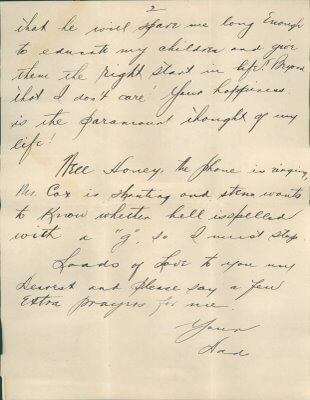 2
that he will spare me long Enough
to educate my children and give
them the right start in life! Beyond
that I don't care! Your happiness
is the paramount thought of my
life!
Well Honey, the phone is ringing,
Mr. Cox is shouting and steno wants
to know whether hell is spelled
with a "g", so I must stop.
Loads of love to you my
Dearest and please say a few
Extra prayers for me.
Your
Dad